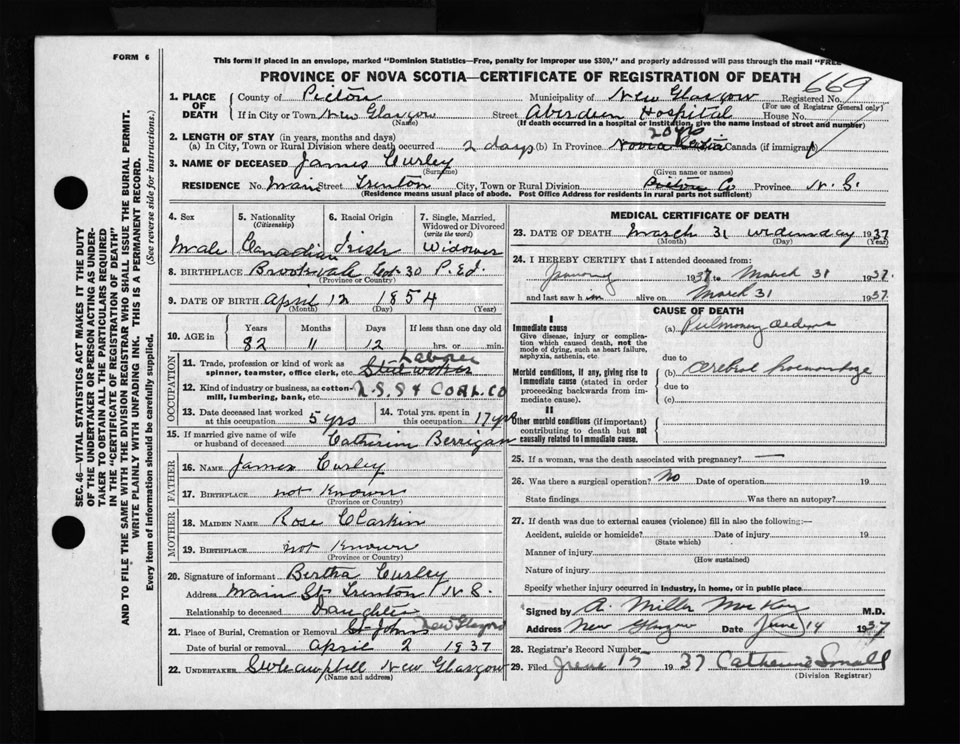 FORM 6
This form if placed in an envelope, marked "Dominion Statistics—Free, penalty for improper use $300," and properly addressed will pass through the mail "FREE
PROVINCE OF NOVA SCOTIA—CERTIFICATE OF REGISTRATION OF DEATH
669
1. PLACE OF DEATH
County of Pictou Municipality of New Glasgow Registered No.
(For use of Registrar General only)
If in City or Town New Glasgow Street Aberdeen Hospital House No.
(Name) (If death occurred in a hospital or institution, give the name instead of street and number)
2. LENGTH OF STAY (in years, months and days)
(a) In City, Town or Rural Division where death occurred 2 days (b) In Province Canada (if immigrant)
3. NAME OF DECEASED James Curley
(Surname) (Given name or names)
RESIDENCE No. Main Street Trenton City, Town or Rural Division Pictou Co Province N. S.
(Residence means usual place of abode. Post Office Address for residents in rural parts not sufficient)
4. Sex 5. Nationality (Citizenship) 6. Racial Origin 7. Single, Married, Widowed or Divorced (write the word)
Male Canadian Irish Widower
8. BIRTHPLACE Brookvale Lot 30 P. Ed.
(Province or Country)
9. DATE OF BIRTH April 12 1854
(Month) (Day) (Year)
10. AGE in Years Months Days If less than one day old
82 11 12 hrs. or min.
OCCUPATION
11. Trade, profession or kind of work as spinner, teamster, office clerk, etc. Laborer Steel worker
12. Kind of industry or business, as cotton-mill, lumbering, bank, etc. N. S. St & COAL. CO
13. Date deceased last worked at this occupation 5 yrs 14. Total yrs. spent in this occupation 17 yrs
15. If married give name of wife or husband of deceased Catherine Berrigan
FATHER
16. NAME James Curley
17. BIRTHPLACE not Known
(Province or Country)
MOTHER
18. MAIDEN NAME Rose Clarkin
19. BIRTHPLACE not Known
(Province or Country)
20. Signature of informant Bertha Curley
Address Main St Trenton N. S.
Relationship to deceased Daughter
21. Place of Burial, Cremation or Removal St Johns New Glasgow
Date of burial or removal April 2 1937
22. UNDERTAKER New Glasgow
(Name and address)
MEDICAL CERTIFICATE OF DEATH
23. DATE OF DEATH March 31 1937
(Month) (Day) (Year)
24. I HEREBY CERTIFY that I attended deceased from:
January 1937 to March 31 1937.
and last saw him alive on March 31 1937
CAUSE OF DEATH
I
Immediate cause
Give disease, injury or complication which caused death, not the mode of dying, such as heart failure, asphyxia, asthenia, etc.
(a) Pulmonary oedema
due to
Morbid conditions, if any, giving rise to immediate cause (stated in order proceeding backwards from immediate cause).
(b) Cerebral haemorrhage
due to
(c)
II
Other morbid conditions (if important) contributing to death but not causally related to immediate cause.
25. If a woman, was the death associated with pregnancy? —
26. Was there a surgical operation? No Date of operation 19
State findings Was there an autopsy?
27. If death was due to external causes (violence) fill in also the following:—
Accident, suicide or homicide? Date of injury 19
(State which)
Manner of injury
(How sustained)
Nature of injury
Specify whether injury occurred in industry, in home, or in public place
Signed by A. Miller MacKay M.D.
Address New Glasgow Date June 14 1937
28. Registrar's Record Number
29. Filed June 15 1937 Catherine Small
(Division Registrar)
SEC. 46—VITAL STATISTICS ACT MAKES IT THE DUTY OF THE UNDERTAKER OR PERSON ACTING AS UNDERTAKER TO OBTAIN ALL THE PARTICULARS REQUIRED IN THE "CERTIFICATE OF REGISTRATION OF DEATH" AND TO FILE THE SAME WITH THE DIVISION REGISTRAR WHO SHALL ISSUE THE BURIAL PERMIT.
WRITE PLAINLY WITH UNFADING INK. THIS IS A PERMANENT RECORD.
Every item of information should be carefully supplied. (See reverse side for instructions.)